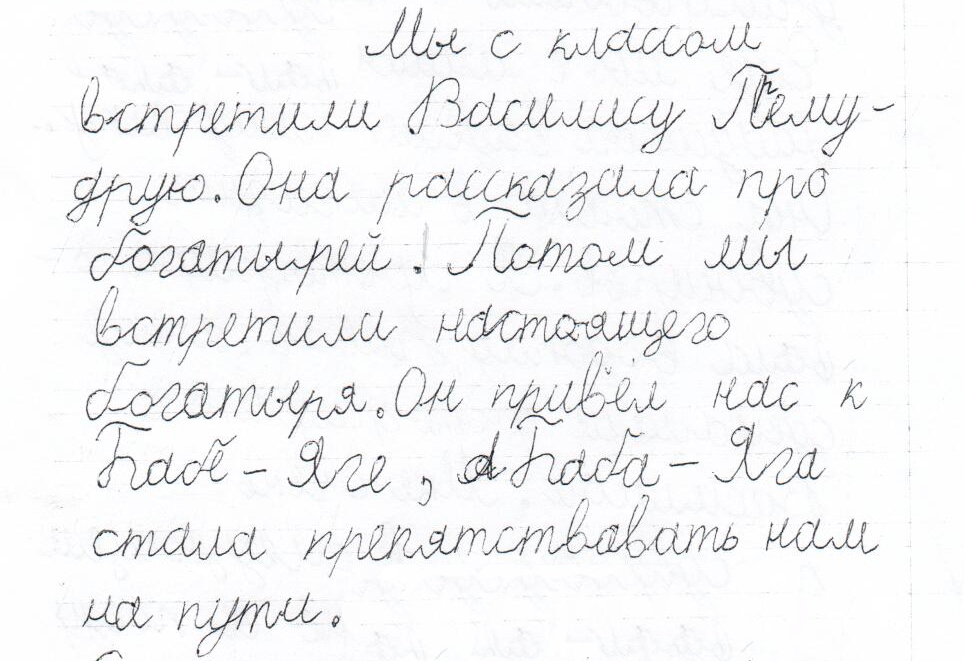 Мы с классом
встретили Василису Прему-
друю. Она рассказала про
богатырей! Потом мы
встретили настоящего
богатыря. Он привёл нас к
Бабе-Яге, а Баба-Яга
стала препятствовать нам
на пути.